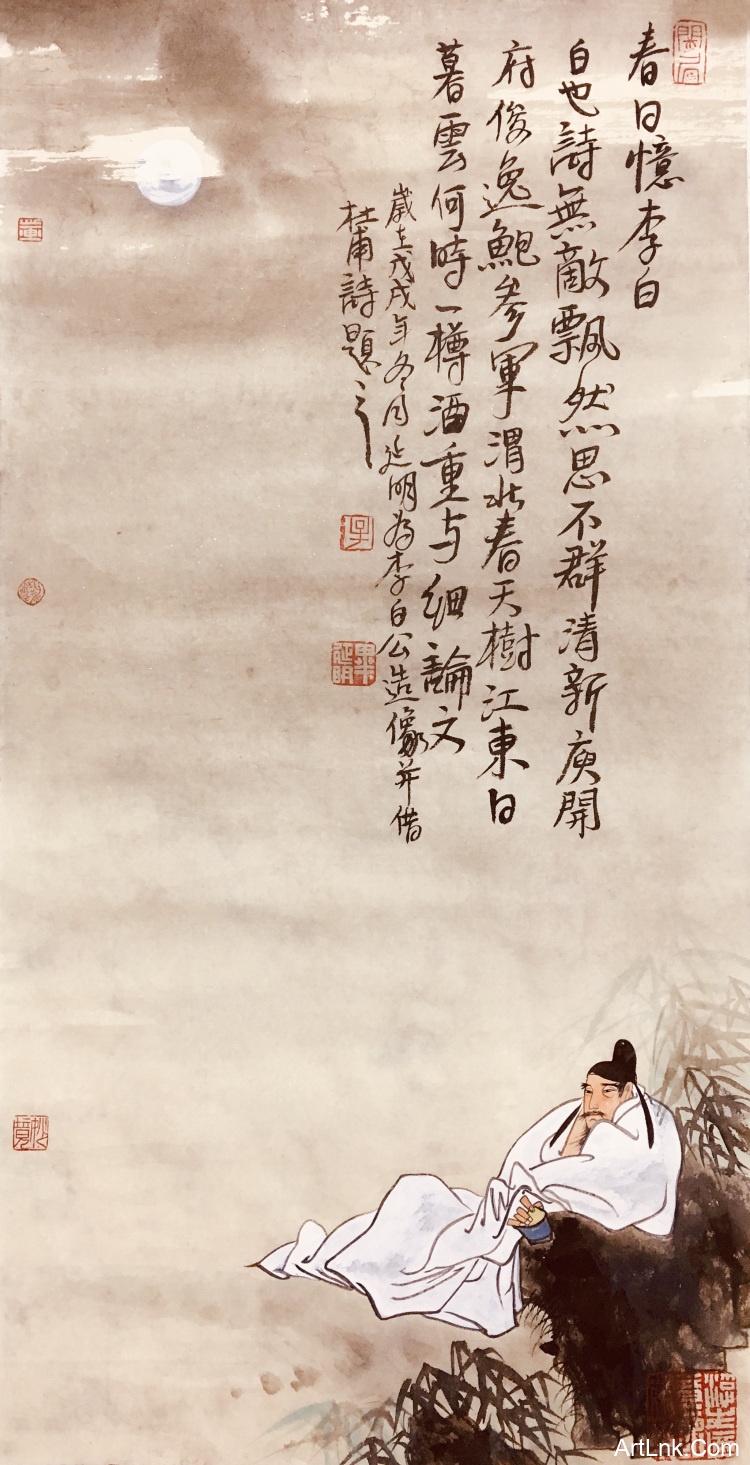 春日憶李白
白也詩無敵飄然思不群清新庾開
府俊逸鮑参軍渭北春天樹江東日
暮雲何時一樽酒重与細論文
歲在戊戌年冬月延明為李白公造像并借
杜甫詩題之
ArtLnk.Com